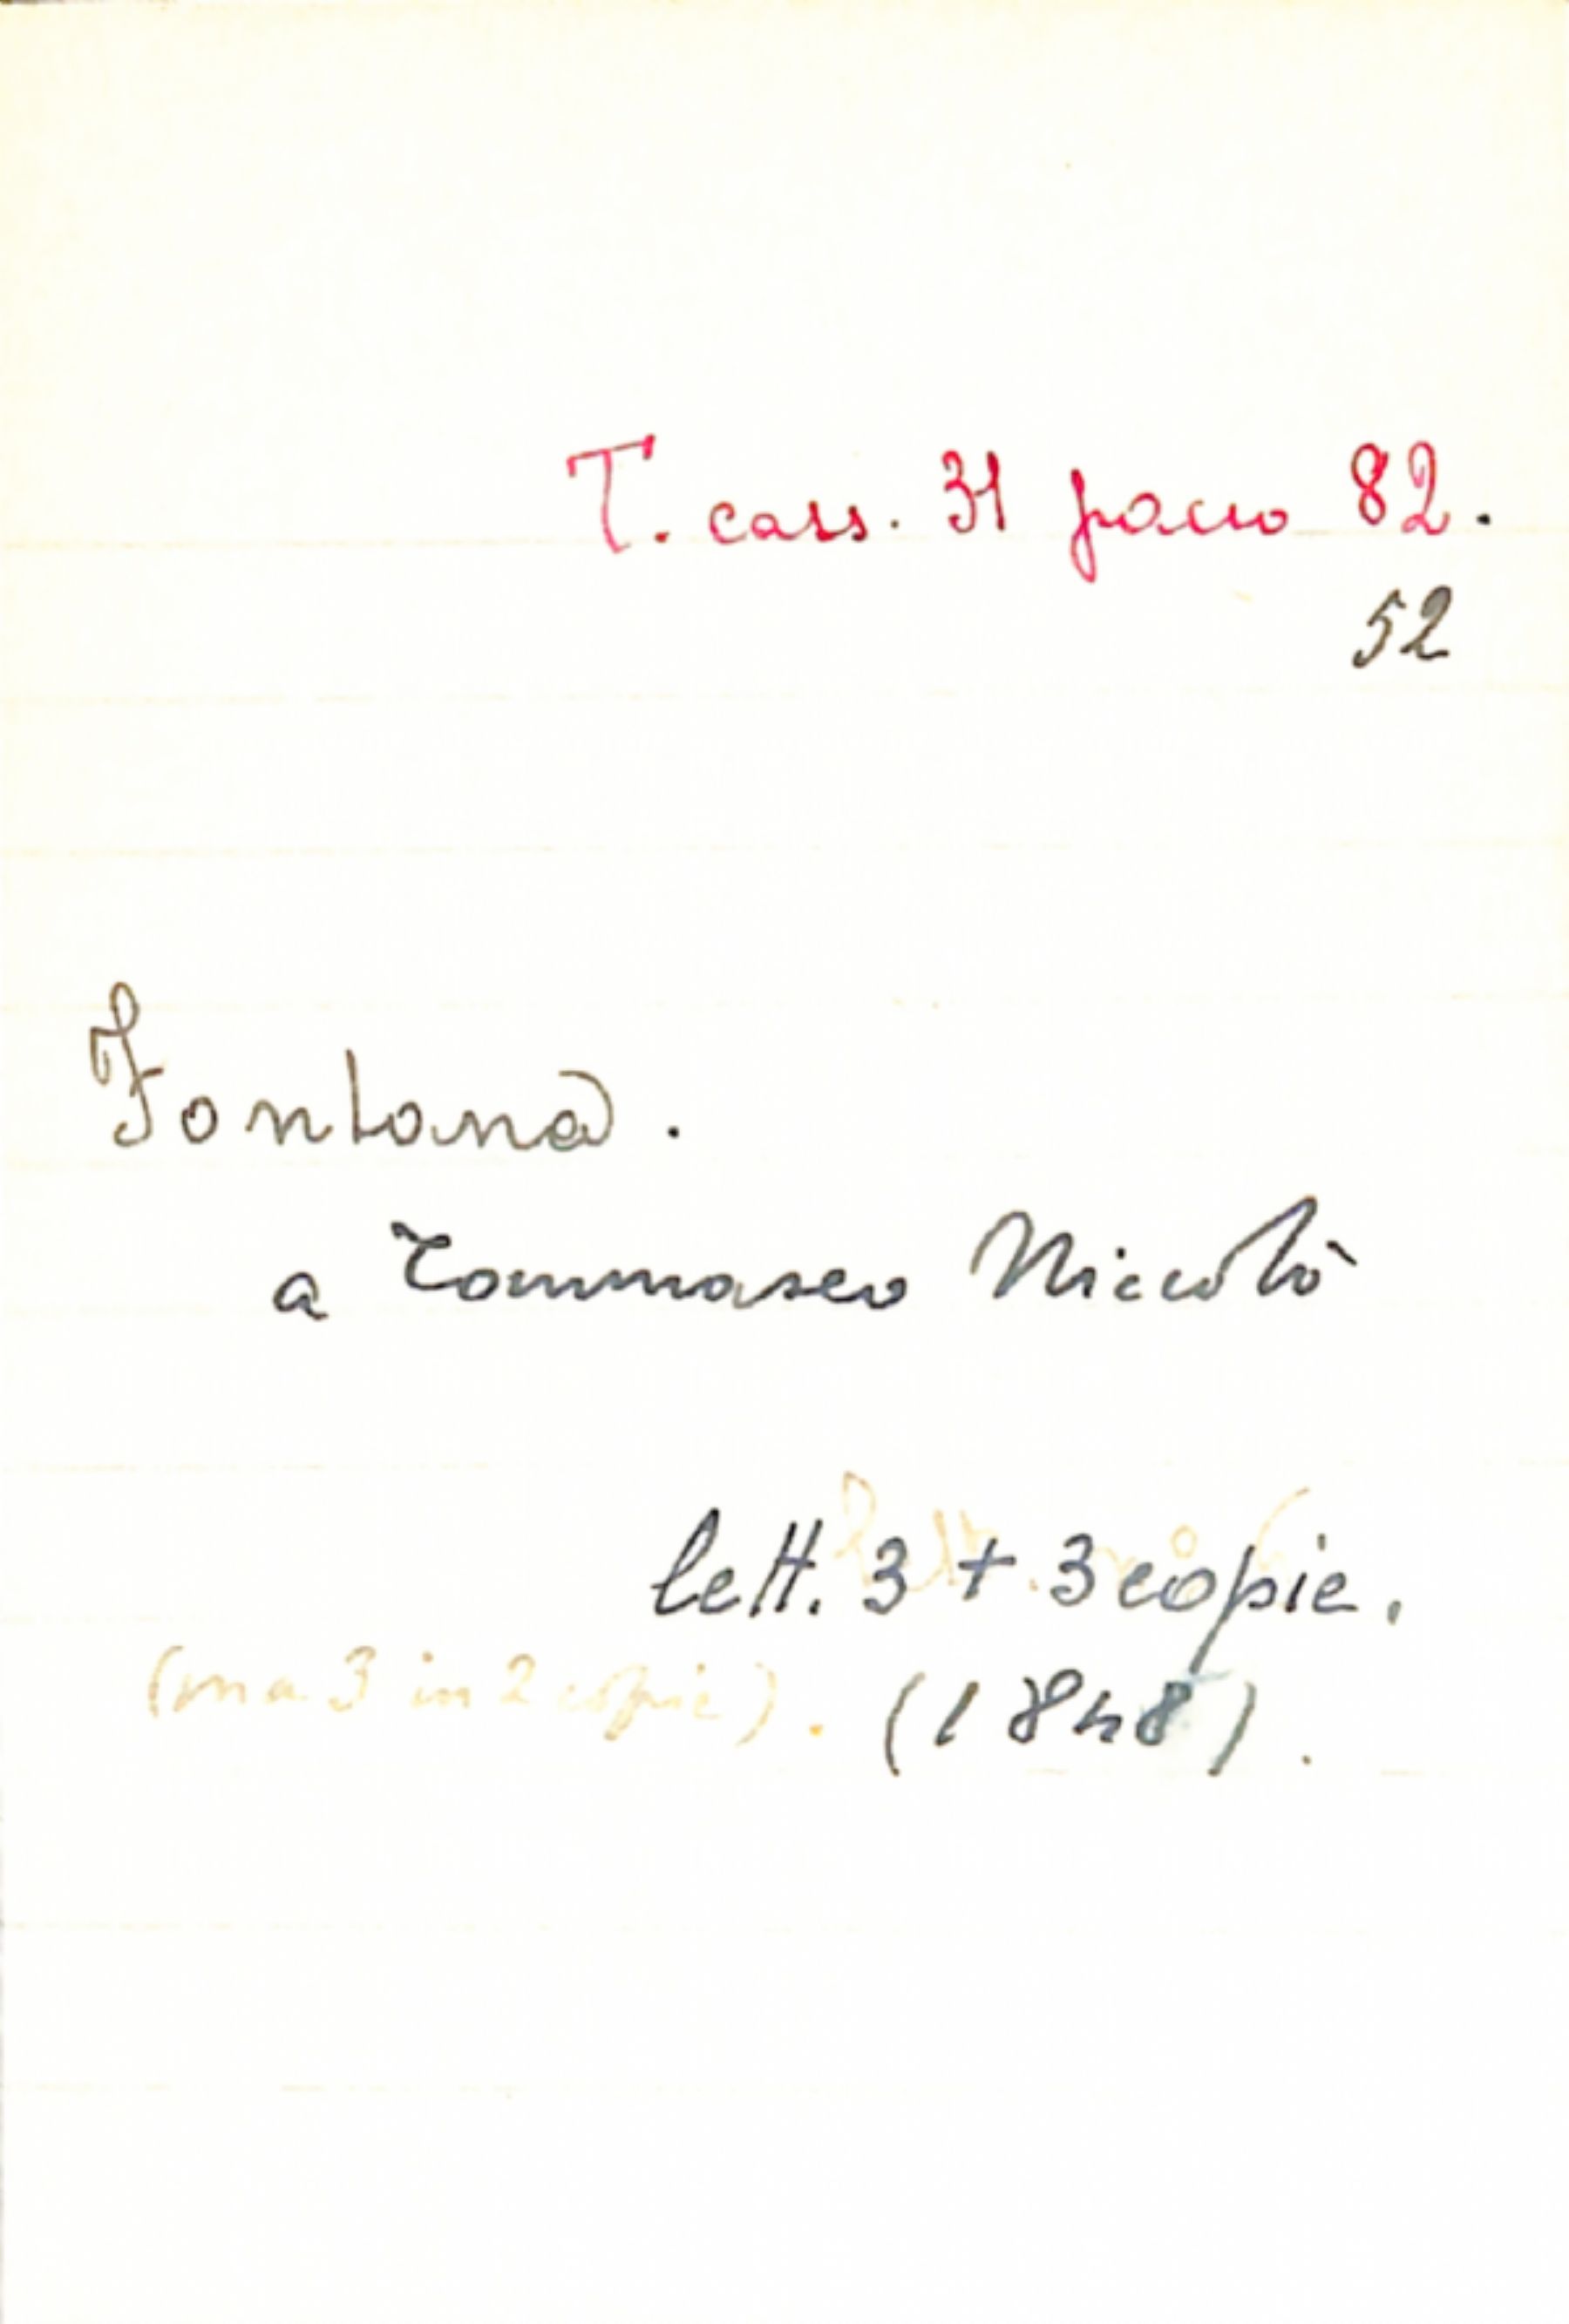 T. cass. 31 pacco 82.
52
Fontana.
a Tommaseo Niccolò
lett. 3 + 3 copie.
(ma 3 in 2 copie). (1848).